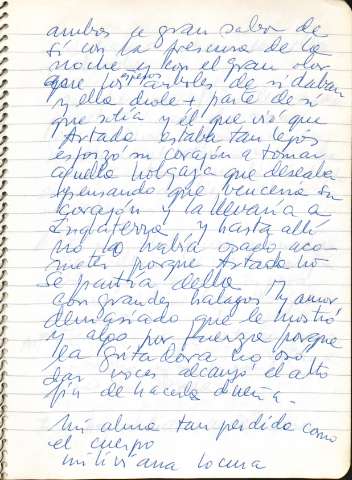 ambos a gran sabor de
sí con la frescura de la
noche y con el gran olor
que los espesos árboles de sí daban
y ella diole + parte de sí
que solía y él que vió que
Artada estaba tan lejos
esforzó su corazón a tomar
aquello holgaza que deseaba
pensando que vencería su
corazón y la llevaría a
Inglaterra y hasta allí
no lo había osado aco-
meter porque Artada no
se partía della y
con grandes halagos y amor
demasiado que le mostró
y algo por fuerza porque
la gritadora no osó
dar voces alcanzó el alto
fin de hacerla dueña.-
Mi alma tan perdida como
el cuerpo
mi liviana locura